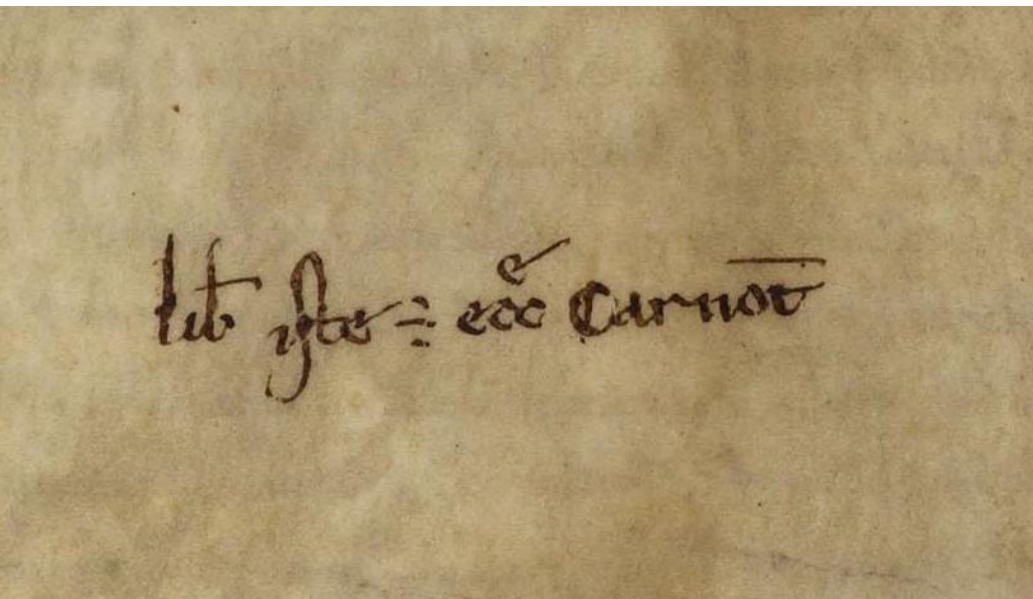 lib̄ iste ÷ eccͤ Carnot̄